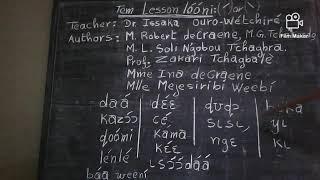 Tem Lesson lóóni: (1 or
Teacher: Dr. Issaka Ouro-Wétchiré
Authors: M. Robert deCraene, M.G. Tchag
M. L. Soli Ngobou Tchagbra.
Prof. Zakari Tchagbale
Mme Ina deCraene
Mlle Mejesiribi Weebi
daá déɛ
kazɔ́ɔ cé sɩsɩ yɩ
ɖoóni kamá ngɛ kɩ
lénlé kéɛ
báa weení ɩsɔ́ɔ́dáá
Film Maker